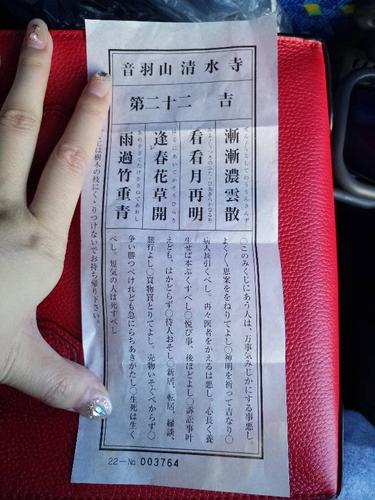 音羽山清水寺
第二十二　吉
漸漸濃雲散
看看月再明
逢春花草開
雨過竹重青
〇このみくじにあう人は、万事気みじかにする事悪し。
よくよく思案をねりてよし〇神明を祈って吉なり〇
病人長引くべし、再々医者をかえるは悪し。心長く養
生せば本ぷくすべし〇悦び事、後ほどよし〇訴訟事叶
えども、はかどらず〇待人おそし〇新居、転居、縁談、
旅行よし〇買物買とりてよし。売物いそぐべからず〇
争い勝つべけれども急にらちあきがたし〇生死は生く
べし。短気の人は死すべし
みくじは樹木の枝にくくりつけないでお持ち帰り下さい。
22—No 003764